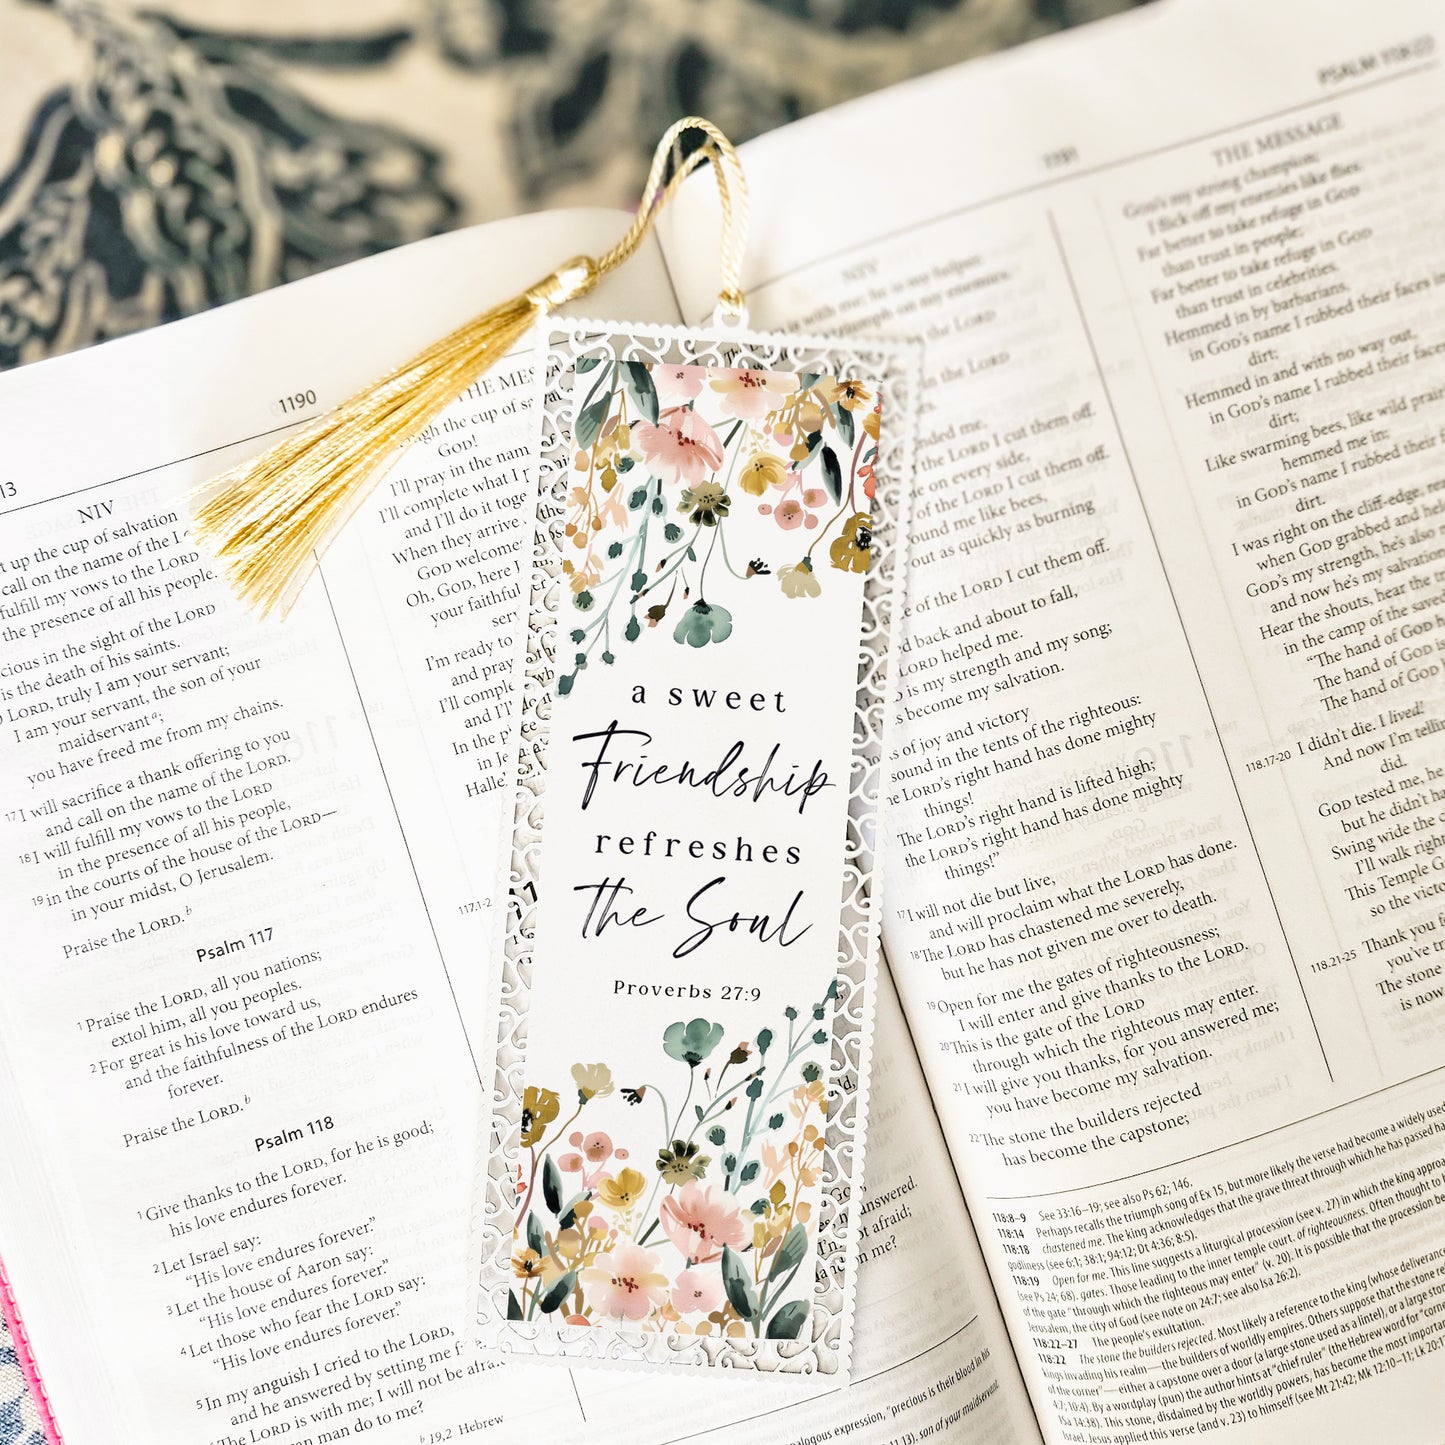 1190
13
NIV
t up the cup of salvation
call on the name of the
fulfill my vows to the LORD
the presence of all his people.
in the sight of the LORD
is the death of his saints.
LORD, truly I am your servant;
I am your servant, the son of your
maidservant a;
you have freed me from my chains.
17 I will sacrifice a thank offering to you
and call on the name of the LORD.
18 I will fulfill my vows to the LORD
in the presence of all his people,
19 in the courts of the house of the LORD—
in your midst, O Jerusalem.
Praise the LORD. b
Psalm 117
1 Praise the LORD, all you nations;
extol him, all you peoples.
2 For great is his love toward us,
and the faithfulness of the LORD endures
forever.
Praise the LORD. b
Psalm 118
1 Give thanks to the LORD, for he is good;
his love endures forever.
2 Let Israel say:
“His love endures forever.”
3 Let the house of Aaron say:
“His love endures forever.”
4 Let those who fear the LORD say:
“His love endures forever.”
5 In my anguish I cried to the LORD,
and he answered by setting me
The LORD is with me; I will not be
man do to me?
b 19,2 Hebrew
THE
the cup of
GOD!
I'll pray in the name
I'll complete what I
and I'll do it
When they arrive
GOD welcomes
Oh, GOD, here
your faithful
I'm ready to
and pray
I'll
and I'll
In the
in
117.1-2
a sweet
Friendship
refreshes
the Soul
Proverbs 27:9
NIV
with me; he is my helper.
triumph on my enemies.
the LORD
in the LORD
me,
the LORD I cut them off.
me on every side,
of the LORD I cut them off.
around me like bees,
out as quickly as burning
of the LORD I cut them off.
back and about to fall,
LORD helped me.
is my strength and my song;
become my salvation.
of joy and victory
sound in the tents of the righteous:
LORD's right hand has done mighty
things!
The LORD's right hand is lifted high;
the LORD's right hand has done mighty
things!”
17 I will not die but live,
and will proclaim what the LORD has done.
18 The LORD has chastened me severely,
but he has not given me over to death.
19 Open for me the gates of righteousness;
I will enter and give thanks to the LORD.
20 This is the gate of the LORD
through which the righteous may enter.
21 I will give you thanks, for you answered me;
you have become my salvation.
22 The stone the builders rejected
has become the capstone;
1191
THE MESSAGE
PSALM 118:22
God's my strong champion;
I flick off my enemies like flies.
Far better to take refuge in GOD
than trust in people;
Far better to take refuge in GOD
than trust in celebrities.
Hemmed in by barbarians,
in GOD's name I rubbed their faces in
dirt;
Hemmed in and with no way out,
in GOD's name I rubbed their faces
dirt;
Like swarming bees, like wild
hemmed me in;
in GOD's name I rubbed their
dirt.
I was right on the cliff-edge,
when GOD grabbed and
GOD's my strength, he's also
and now he's my salvation.
Hear the shouts, hear the
in the camp of the saved
“The hand of GOD
The hand of GOD is
The hand of GOD
118.17-20 I didn't die. I lived!
And now I'm
did.
GOD tested me, he
but he didn't
Swing wide the
I'll walk right
This Temple
so the
118.21-25 Thank you
you've
The stone
is now
118:8–9 See 33:16–19; see also Ps 62; 146.
118:14 Perhaps recalls the triumph song of Ex 15, but more likely the verse had become a widely used
118:18 chastened me. The king acknowledges that the grave threat through which he has passed
godliness (see 6:1; 38:1; 94:12; Dt 4:36; 8:5).
118:19 Open for me. This line suggests a liturgical procession (see v. 27) in which the king
(see Ps 24; 68). gates. Those leading to the inner temple court. of righteousness. Often thought to
of the gate “through which the righteous may enter” (v. 20). It is possible that the procession
Jerusalem, the city of God (see note on 24:7; see also Isa 26:2).
118:22–27 The people's exultation.
118:22 The stone the builders rejected. Most likely a reference to the king (whose
kings invading his realm—the builders of worldly empires. Others suppose that the stone
of the corner”—either a capstone over a door (a large stone used as a lintel), or a large
4:7; 10:4). By a wordplay (pun) the author hints at “chief ruler” (the Hebrew word for
Isa 14:38). This stone, disdained by the worldly powers, has become the most important
Israel. Jesus applied this verse (and v. 23) to himself (see Mt 21:42; Mk 12:10–11;
answered.
afraid;
on me?
expression, “precious is their blood in his
son of your maidservant.